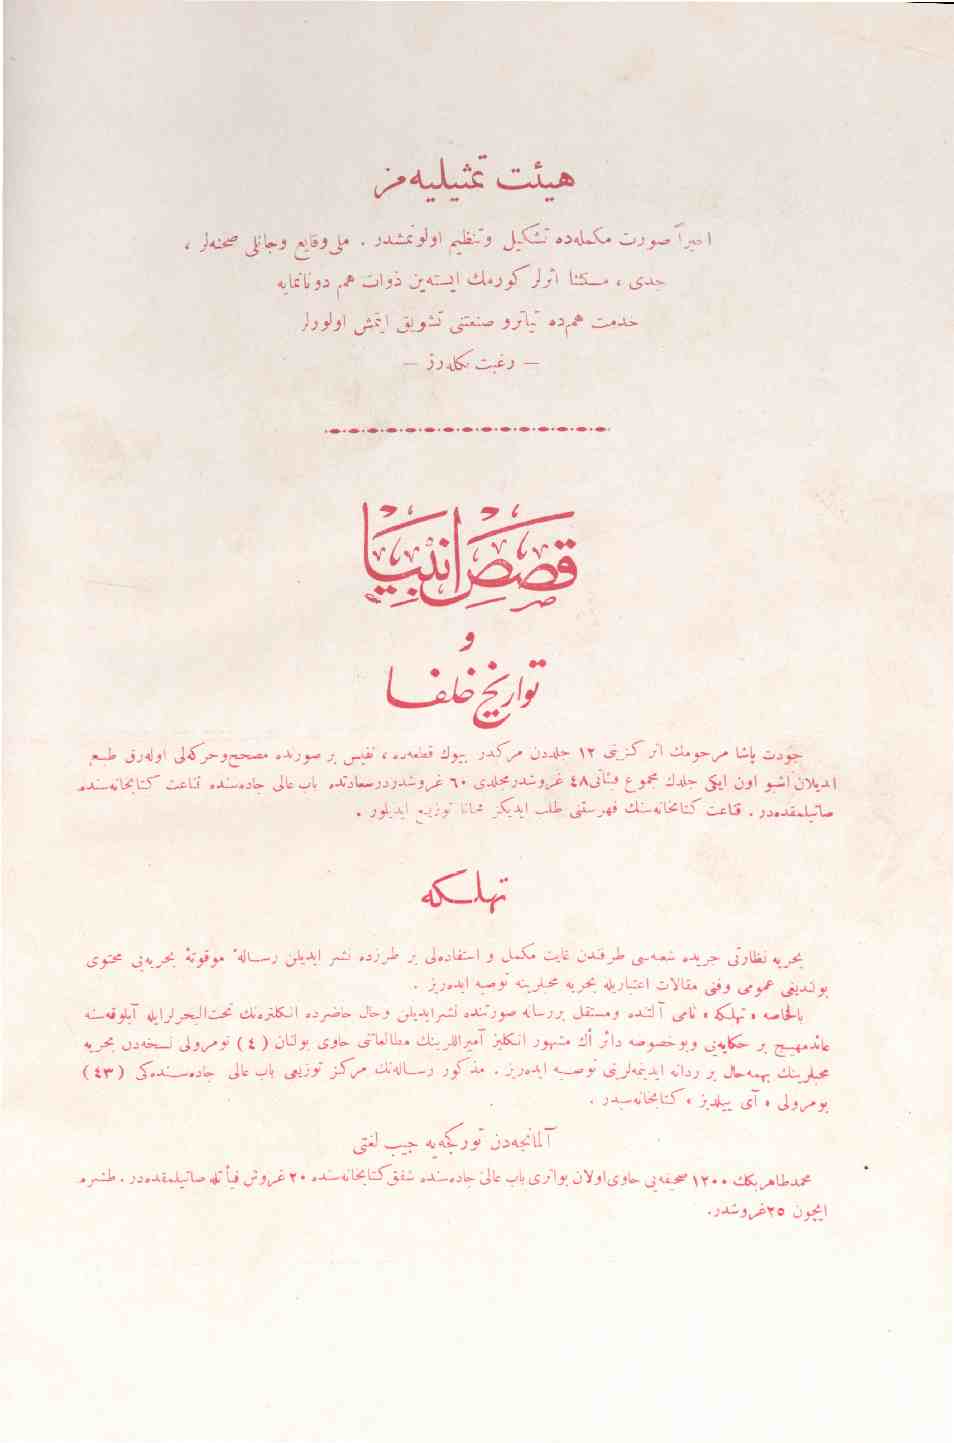 هیئت تمثیلیه‌مز
اخیراً صورت مکمله‌ده تشکیل و تنظیم اولونمشدر . ملی وقایع و جانلی صحنه‌لر ،
جدی ، مستثنا اثرلر کورمك ایسته‌ین ذوات هم دونانمایه
خدمت هم‌ده تیاترو صنعتنی تشویق ایتمش اولورلر
— رغبت بکله‌رز —
قصص انبیا
و
تواریخ خلفا
جودت پاشا مرحومك اثر کزینی ۱۲ جلددن مرکبدر بیوك قطعه‌ده ، نفیس بر صورتده مصحح و حرکه‌لی اوله‌رق طبع
ایدیلان اشبو اون ایکی جلدك مجموع فیئاتی ۴۸ غروشدر مجلدی ۶۰ غروشدر درسعادتده باب عالی جاده‌سنده قناعت کتابخانه‌سنده
صاتیلمقده‌در . قناعت کتابخانه‌سنك فهرستنی طلب ایدیکز مجاناً توزیع ایدیلور .
تهلـکه
بحریه نظارتی جریده شعبه‌سی طرفندن غایت مکمل و استفاده‌لی بر طرزده نشر ایدیلن رسـالهٔ موقوتهٔ بحریه‌یی محتوی
بولندیغی عمومی وفنی مقالات اعتباریله بحریه محبلرینه توصیه ایده‌ریز .
بالخاصه « تهلکه » نامی آلتنده ومستقل بررساله صورتنده نشرایدیلن وحال حاضرده انکلتره‌نك تحت‌البحرلرایله آبلوقه‌سنه
عائدمهیج بر حکایه‌یی وبوخصوصه دائر اك مشهور انکلیز آمیراللرینك مطالعاتنی حاوی بولنان ( ۴ ) نومرولی نسخه‌دن بحریه
محبلرینك بهمه‌حال بر ردانه ایدینمه‌لرینی توصـیه ایده‌ریز . مذکور رسـاله‌نك مرکز توزیعی باب عالی جاده‌سـنده‌کی ( ۴۳ )
نومرولی « آی ییلدیز » کتابخانه‌سیدر .
آلمانجه‌دن تورکجه‌یه جیب لغتی
محمد طاهر بکك ۱۲۰۰ صحیفه‌یی حاوی اولان بواثری باب عالی جاده‌سنده شفق کتابخانه‌سنده ۲۰ غروش فیأتله صاتیلمقده‌در . طشره
ایچون ۲۵ غروشدر.